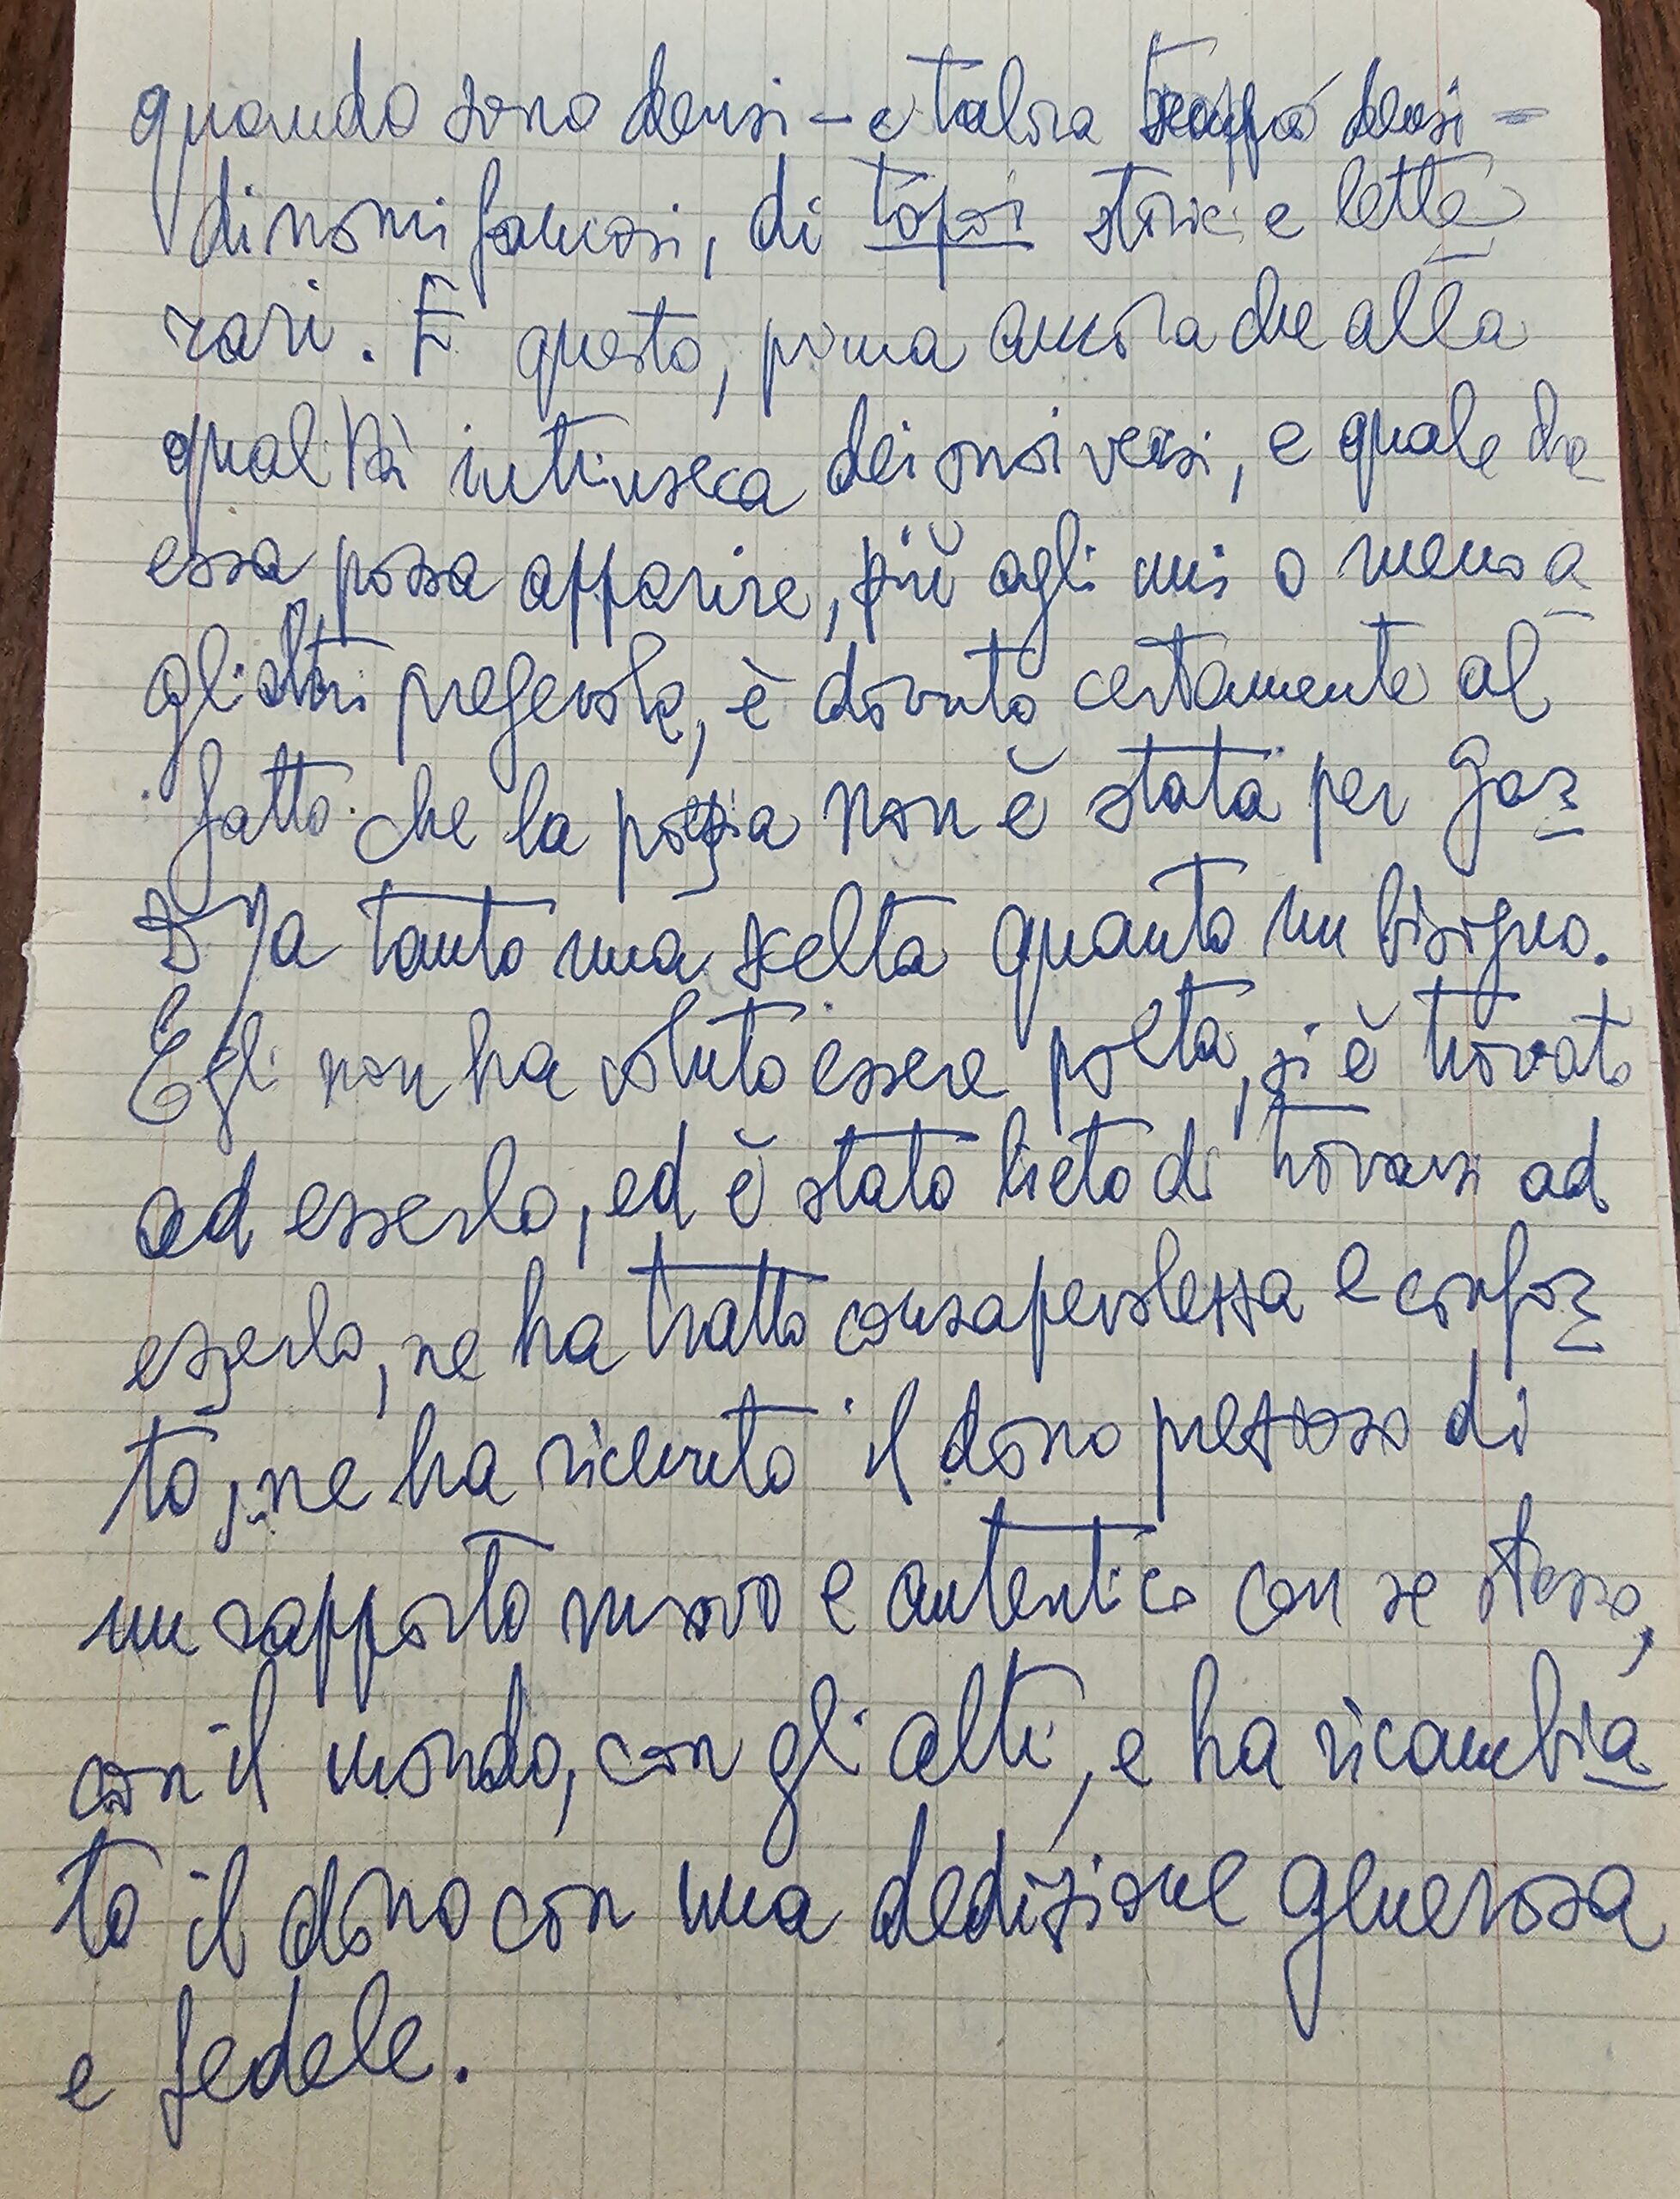 quando sono densi – e talora troppo densi –
di nomi famosi, di topoi storici e lette
rari. E questo, prima ancora che alla
qualità intrinseca dei suoi versi, e quale che
essa possa apparire, più agli uni o meno a
gli altri pregevole, è dovuto certamente al
fatto che la poesia non è stata per Gaz
ja tanto una scelta quanto un bisogno.
Egli non ha voluto essere poeta, si è trovato
ad esserlo, ed è stato lieto di trovarsi ad
esserlo, ne ha tratto consapevolezza e confor
to, ne ha ricevuto il dono prezioso di
un rapporto nuovo e autentico con se stesso,
con il mondo, con gli altri, e ha ricambia
to il dono con una dedizione generosa
e fedele.